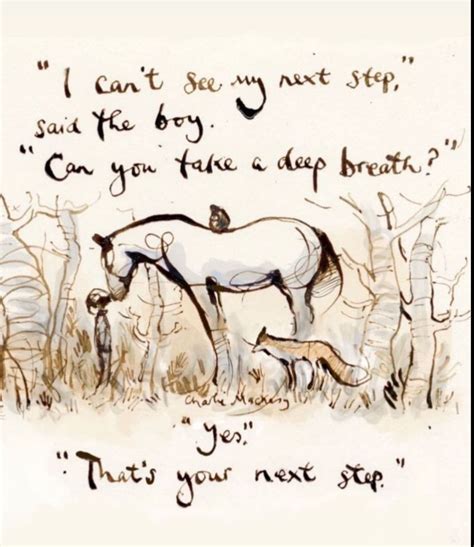 "I can't see my next step,"
said the boy.
"Can you take a deep breath?"
Charlie Mackesy
"Yes."
"That's your next step."